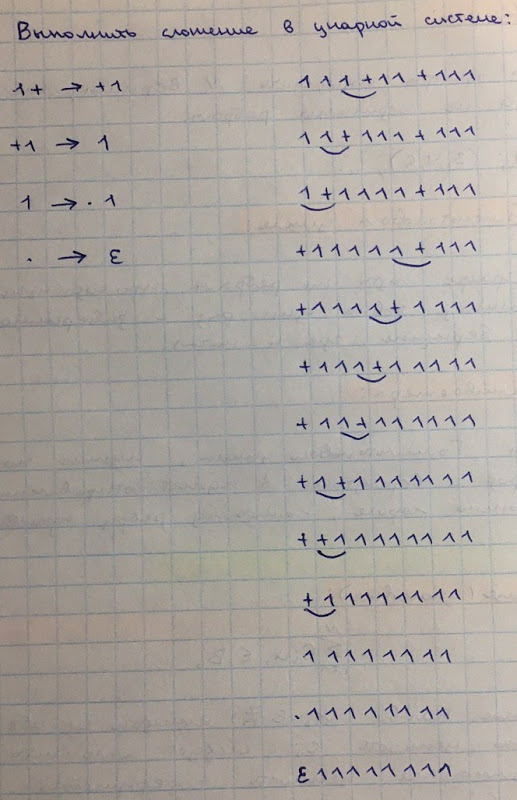 Выполнить сложение в унарной системе:
1+ → +1
+1 → 1
1 → . 1
. → ε
111+11+111
11+111+111
1+1111+111
+11111+111
+1111+1111
+111+11111
+11+111111
+1+1111111
++11111111
+11111111
11111111
.11111111
ε11111111